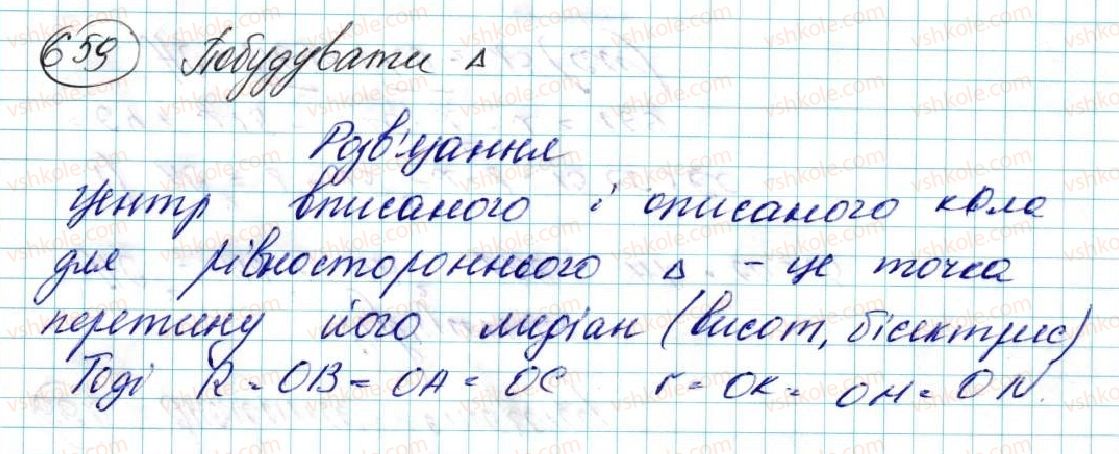 659 Побудувати Δ
Розв'язання
Центр вписаного і описаного кола
для рівностороннього Δ - це точка
перетину його медіан (висот, бісектрис)
Тоді R = OB = OA = OC r = OK = OM = ON.